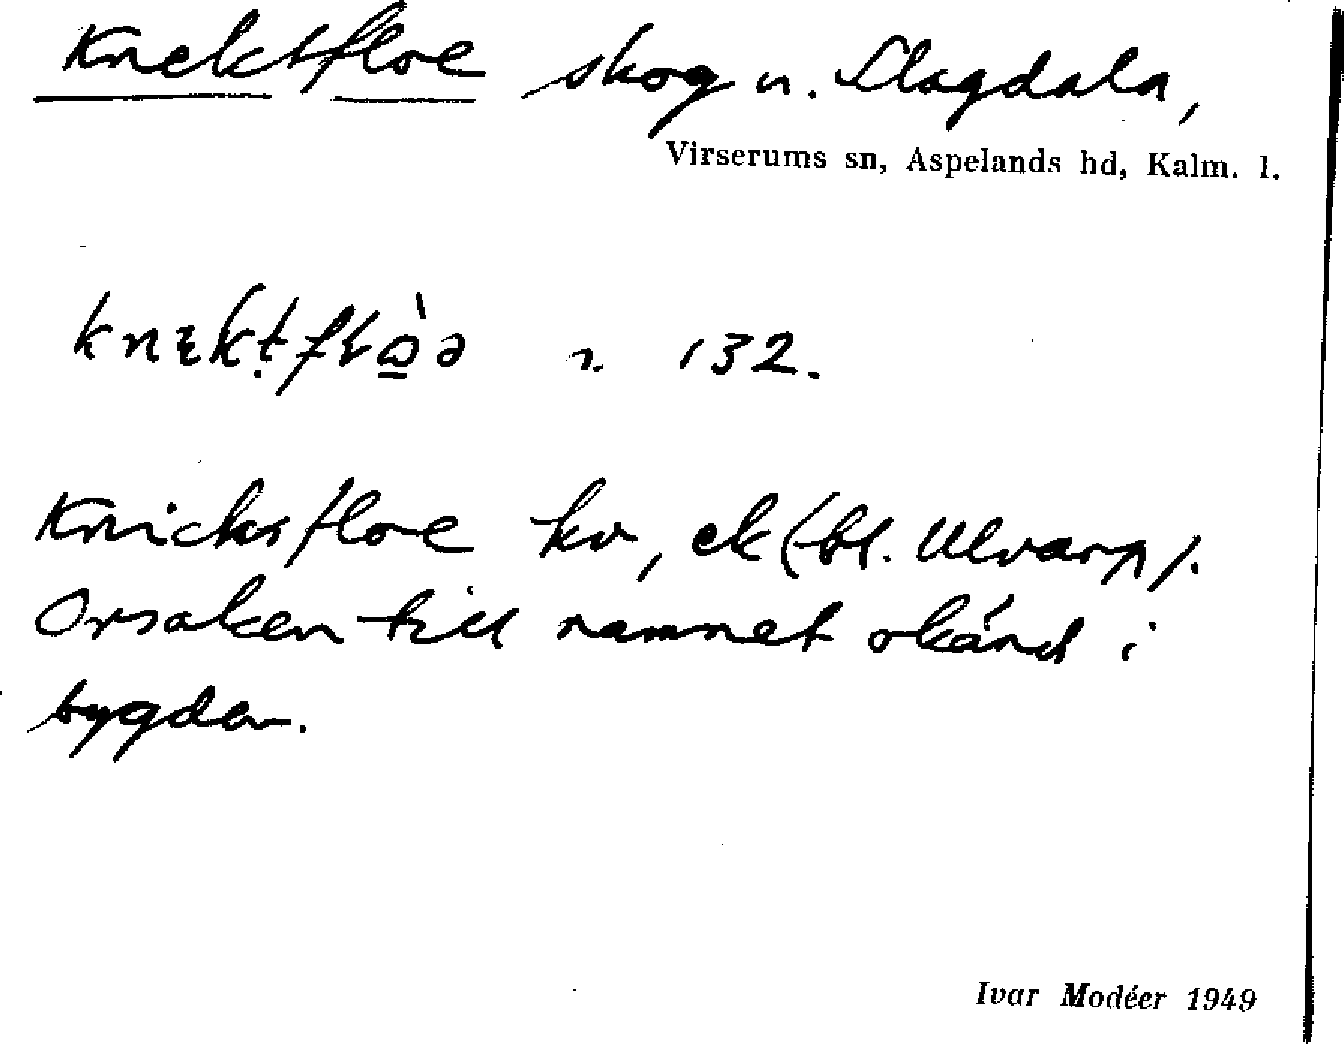 Knektfloe skog u. Slagdala,
Virserums sn, Aspelands hd, Kalm. l.
n. 132.
Knicksfloe kv, ek (bl. Ulvarp).
Orsaken till namnet okänd i
bygden.
Ivar Modéer 1949